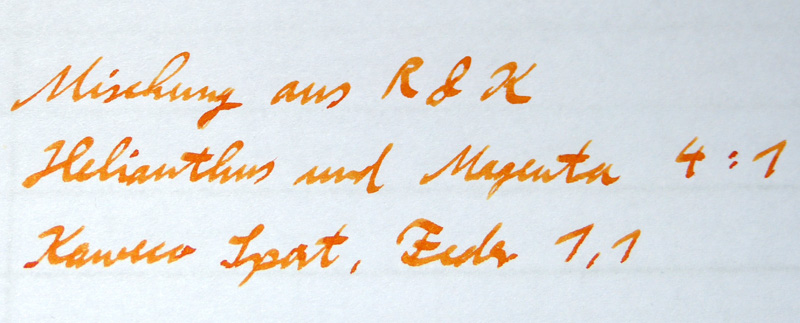 Mischung aus R & K
Helianthus und Magenta 4:1
Kaweco Sport, Feder 1,1